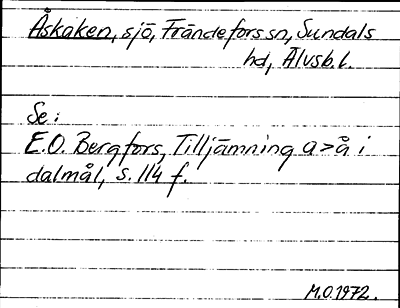 Åskaken, sjö, Frändefors sn, Sundals
hd, Älvsb. l.
Se:
E.O. Bergfors, Tilljämning a>å i
dalmål, s. 114 f.
M.O. 1972.